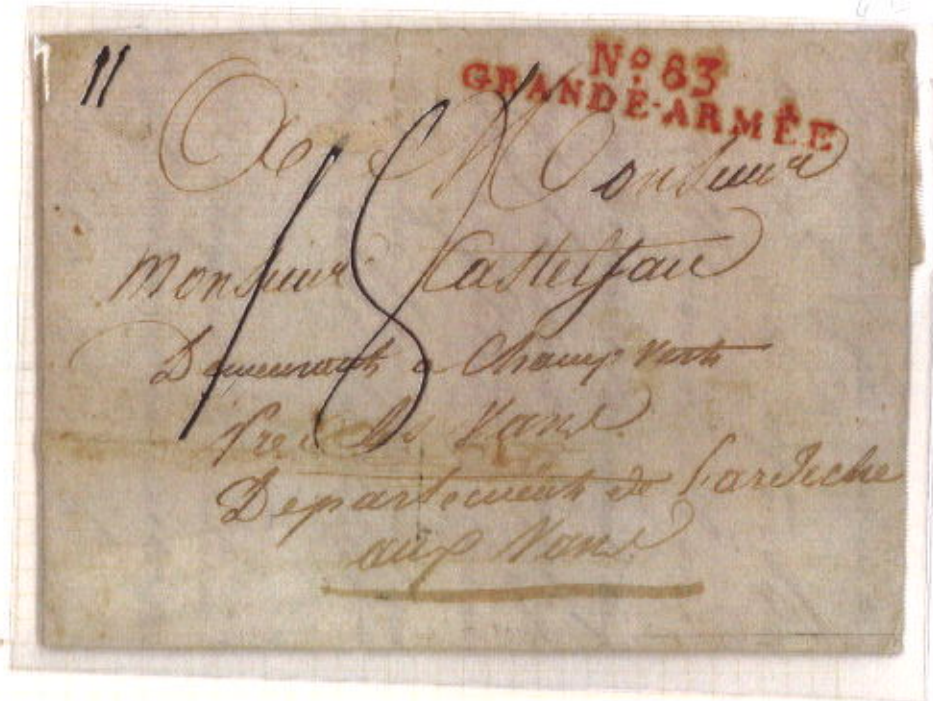 11
No. 83
GRANDE-ARMÉE
A Monsieur
Monsieur Casteljau
18
Demeurant a Champ Vert
Pres les Vans
Departement de Lardeche
aux Vans